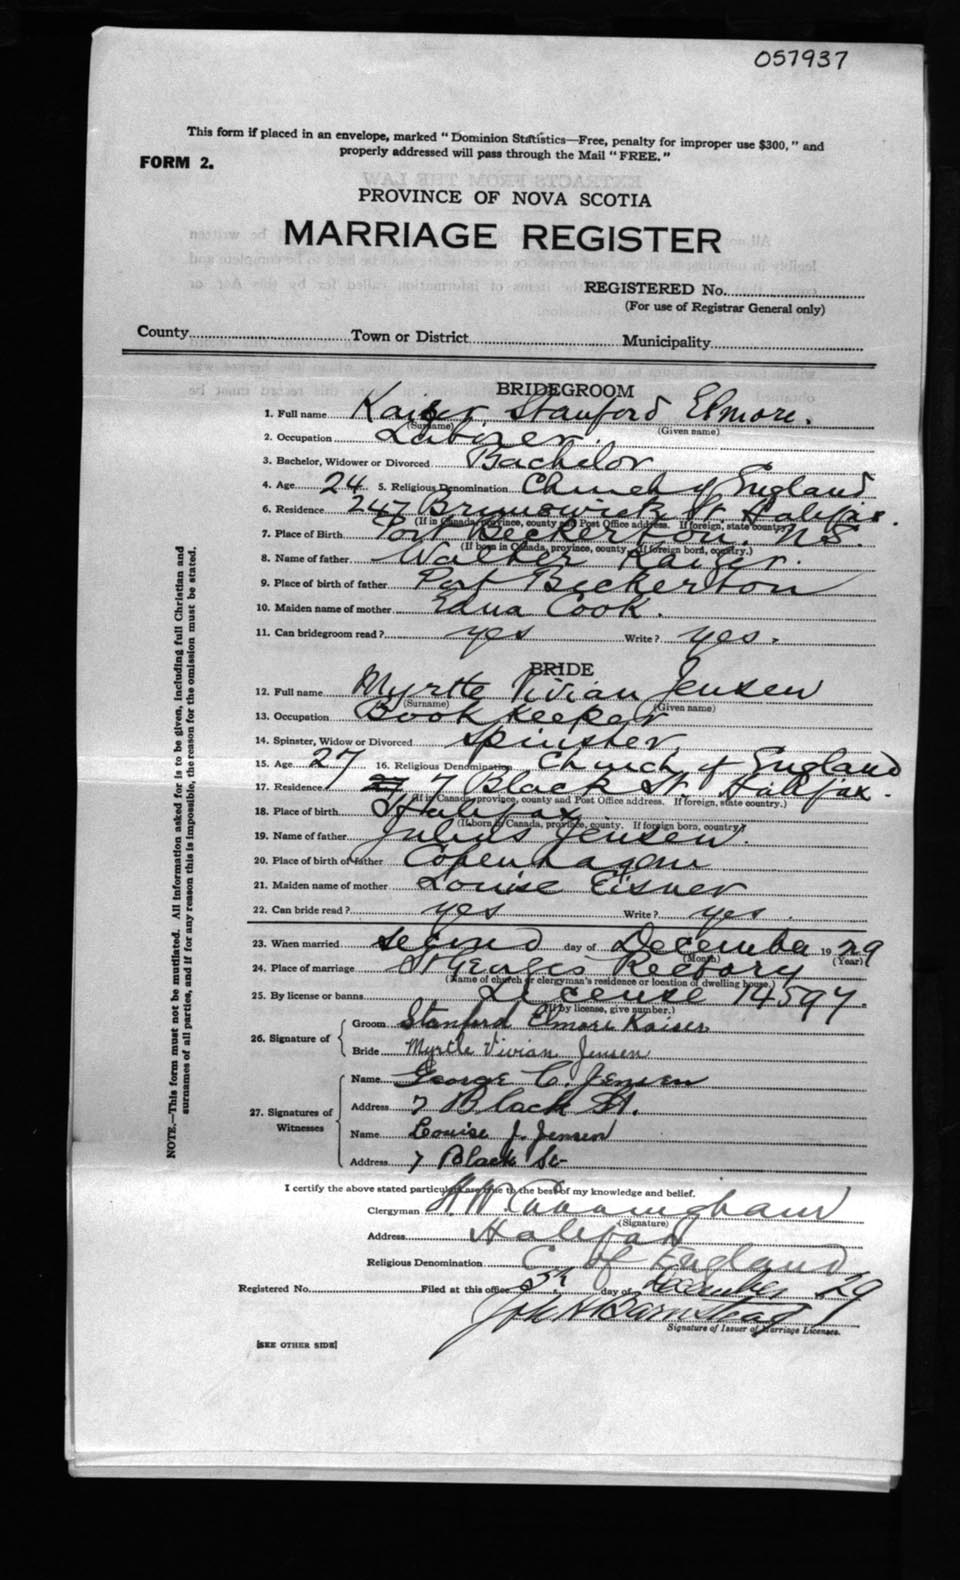 057937
This form if placed in an envelope, marked "Dominion Statistics—Free, penalty for improper use $300," and
properly addressed will pass through the Mail "FREE."
FORM 2.
PROVINCE OF NOVA SCOTIA
MARRIAGE REGISTER
REGISTERED No.
(For use of Registrar General only)
County Town or District Municipality
NOTE.—This form must not be mutilated. All information asked for is to be given, including full Christian and
surnames of all parties, and if for any reason this is impossible, the reason for the omission must be stated.
BRIDEGROOM
1. Full name Kaiser Stanford Elmore.
(Surname) (Given name)
2. Occupation Laborer.
3. Bachelor, Widower or Divorced Bachelor
4. Age 24 5. Religious Denomination Church of England
6. Residence 247 Brunswick St. Halifax.
(If in Canada, province, county and Post Office address. If foreign, state country.)
7. Place of Birth Port Beckerton. N.S.
(If born in Canada, province, county. If foreign born, country.)
8. Name of father Walter Kaizer.
9. Place of birth of father Port Beckerton
10. Maiden name of mother Edna Cook.
11. Can bridegroom read? yes Write? yes.
BRIDE
12. Full name Myrtle Vivian Jensen
(Surname) (Given name)
13. Occupation Book Keeper
14. Spinster, Widow or Divorced Spinster
15. Age 27 16. Religious Denomination Church of England
17. Residence 7 Black St. Halifax.
(If in Canada, province, county and Post Office address. If foreign, state country.)
18. Place of birth Halifax
(If born in Canada, province, county. If foreign born, country)
19. Name of father Julius Jensen.
20. Place of birth of father Copenhagen
21. Maiden name of mother Louise Eisner
22. Can bride read? yes Write? yes.
23. When married second day of December 1929
(Month) (Year)
24. Place of marriage St Georges Rectory
(Name of church or clergyman's residence or location of dwelling house.)
25. By license or banns License 14597.
(If by license, give number.)
26. Signature of
Groom Stanford Elmore Kaiser
Bride Myrtle Vivian Jensen
27. Signatures of Witnesses
Name George C. Jensen
Address 7 Black St.
Name Louise J. Jensen
Address 7 Black St
I certify the above stated particulars are true to the best of my knowledge and belief.
Clergyman H.W. Cunningham
(Signature)
Address Halifax
Religious Denomination C of England
Registered No. Filed at this office 5th day of December 29
Barnstead
Signature of Issuer of Marriage Licenses.
[SEE OTHER SIDE]